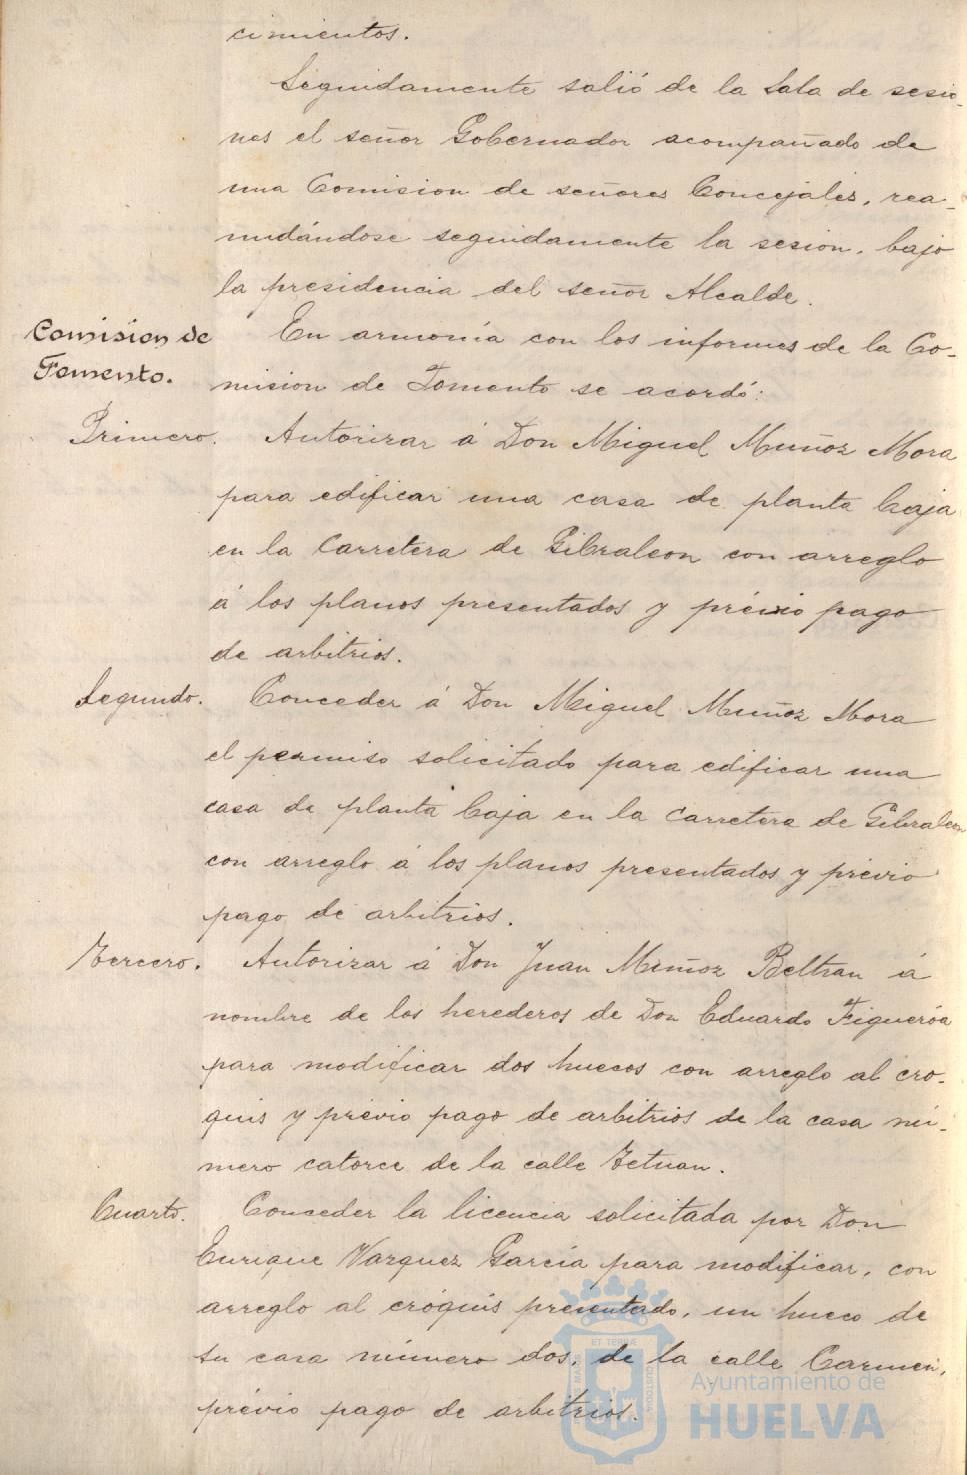 cimientos.
Seguidamente salió de la Sala de sesio-
nes el señor Gobernador acompañado de
una Comision de señores Concejales, rea-
nudándose seguidamente la sesion, bajo
la presidencia del señor Alcalde.
Comision de
Fomento.
En armonía con los informes de la Co-
mision de Fomento se acordó:
Primero.
Autorizar á Don Miguel Muñoz Mora
para edificar una casa de planta baja
en la Carretera de Gibraleon con arreglo
á los planos presentados y prévio pago
de arbitrios.
Segundo.
Conceder á Don Miguel Muñoz Mora
el permiso solicitado para edificar una
casa de planta baja en la Carretera de Gibraleon
con arreglo á los planos presentados y prévio
pago de arbitrios.
Tercero.
Autorizar á Don Juan Muñoz Beltran á
nombre de los herederos de Don Eduardo Figueróa
para modificar dos huecos con arreglo al cro-
quis y prévio pago de arbitrios de la casa nú-
mero catorce de la calle Tetuan.
Cuarto.
Conceder la licencia solicitada por Don
Enrique Vazquez García para modificar, con
arreglo al cróquis presentado, un hueco de
su casa número dos, de la calle Carmen,
prévio pago de arbitrios.
ET TERRÆ
CUSTODIA
Ayuntamiento de
HUELVA